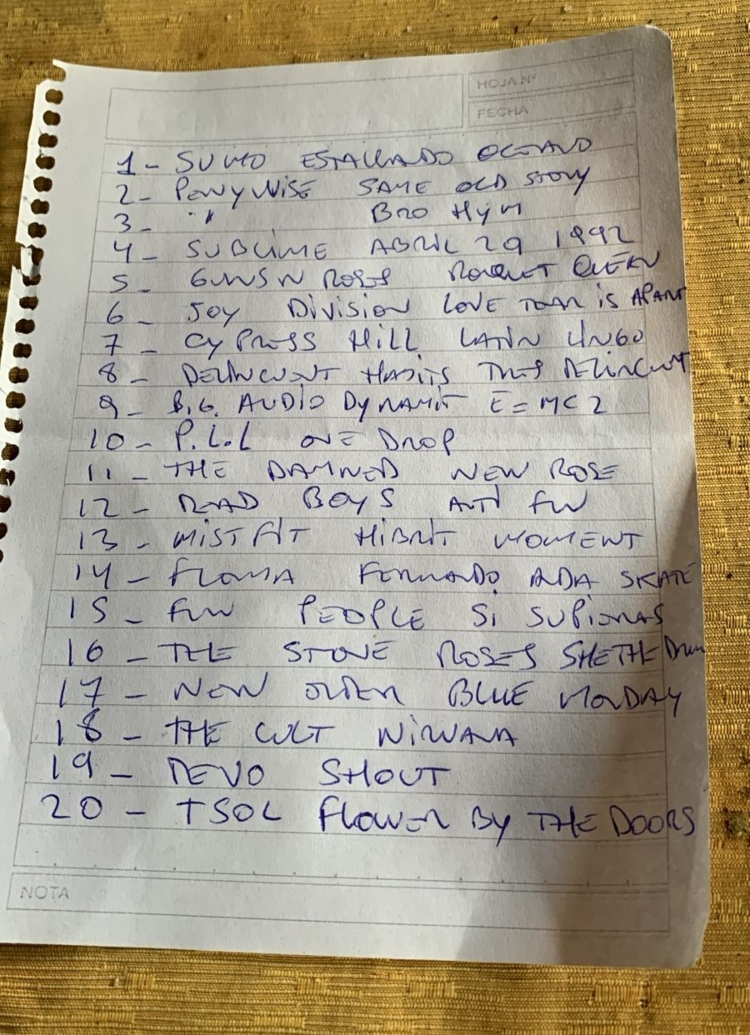 HOJA Nº
FECHA
1- SUMO ESTALLANDO OCEANO
2- PENYWISE SAME OLD STORY
3- " BRO HYM
4- SUBLIME ABRIL 29 1992
5- GUNSN ROSES ROCKET QUEEN
6- JOY DIVISION LOVE TEAR IS APART
7- CYPRESS HILL LATIN LINGO
8- DELINCUENT HABITS THIS DELINCUENT
9- B.G. AUDIO DYNAMIT E=MC2
10- P.L.L ONE DROP
11- THE DAMNED NEW ROSE
12- BOYS
13- MISTFIT HIBRIT MOMENT
14- FLOMA FERNANDO ADA SKATE
15- FUN PEOPLE SI SUPIERAS
16- THE STONE ROSES SHE THE Drum
17- NEW ORDER BLUE MONDAY
18- THE CULT NIRVANA
19- DEVO SHOUT
20- TSOL FLOWER BY THE DOORS
NOTA